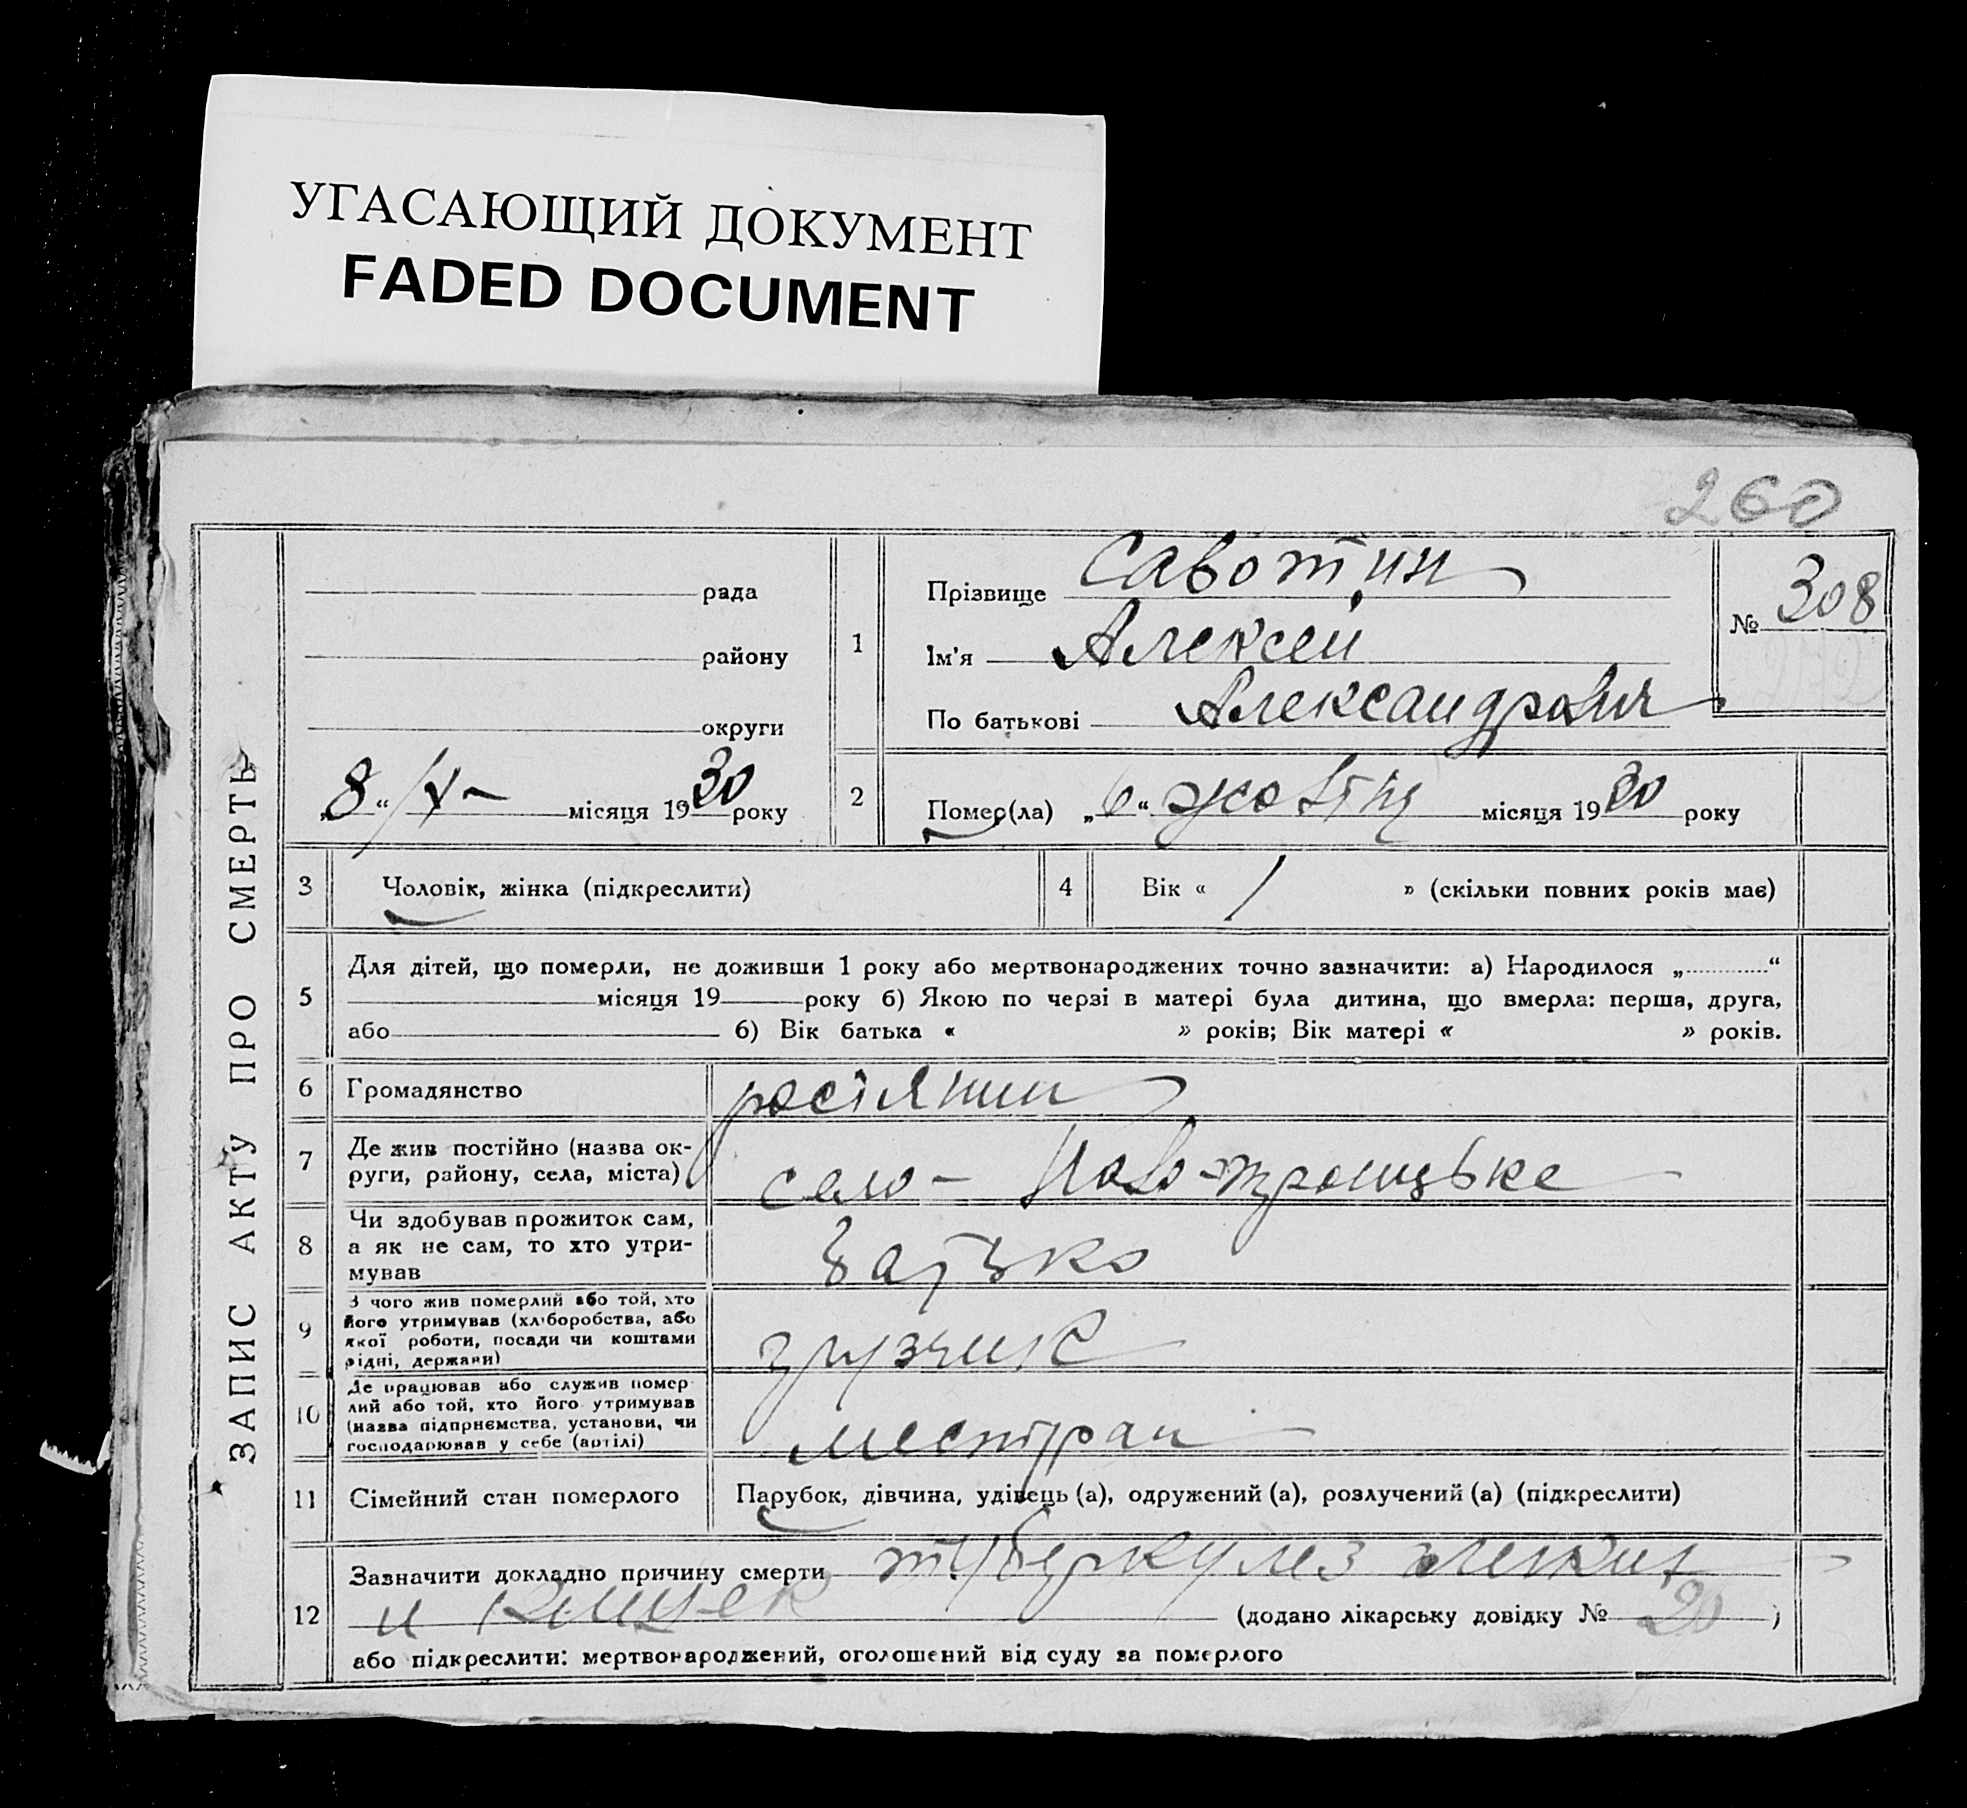 УГАСАЮЩИЙ ДОКУМЕНТ
FADED DOCUMENT
260
ЗАПИС АКТУ ПРО СМЕРТЬ
рада
району
округи
8 "/X- місяця 1930 року
1
Прізвище Савотин
Ім'я Алексей
По батькові Александрович
№ 308
2 Помер(ла) „6" жовтня місяця 1930 року
3 Чоловік, жінка (підкреслити)
4 Вік « 1 » (скільки повних років має)
5
Для дітей, що померли, не доживши 1 року або мертвонароджених точно зазначити: а) Народилося „ “
місяця 19 року б) Якою по черзі в матері була дитина, що вмерла: перша, друга,
або б) Вік батька « » років; Вік матері « » років.
6 Громадянство росіянин
7 Де жив постійно (назва ок-
руги, району, села, міста) село - Ново-троицьке
8 Чи здобував прожиток сам,
а як не сам, то хто утри-
мував
батько
9 З чого жив померлий або той, хто
його утримував (хліборобства, або
якої роботи, посади чи коштами
рідні, держави)
грузчик
10 Де працював або служив помер-
лий або той, хто його утримував
(назва підприємства, установи, чи
господарював у себе (артілі)
местран
11 Сімейний стан померлого Парубок, дівчина, удівець (а), одружений (а), розлучений (а) (підкреслити)
12 Зазначити докладно причину смерти туберкулез
и кишек (додано лікарську довідку № 20 )
або підкреслити: мертвонароджений, оголошений від суду за померлого